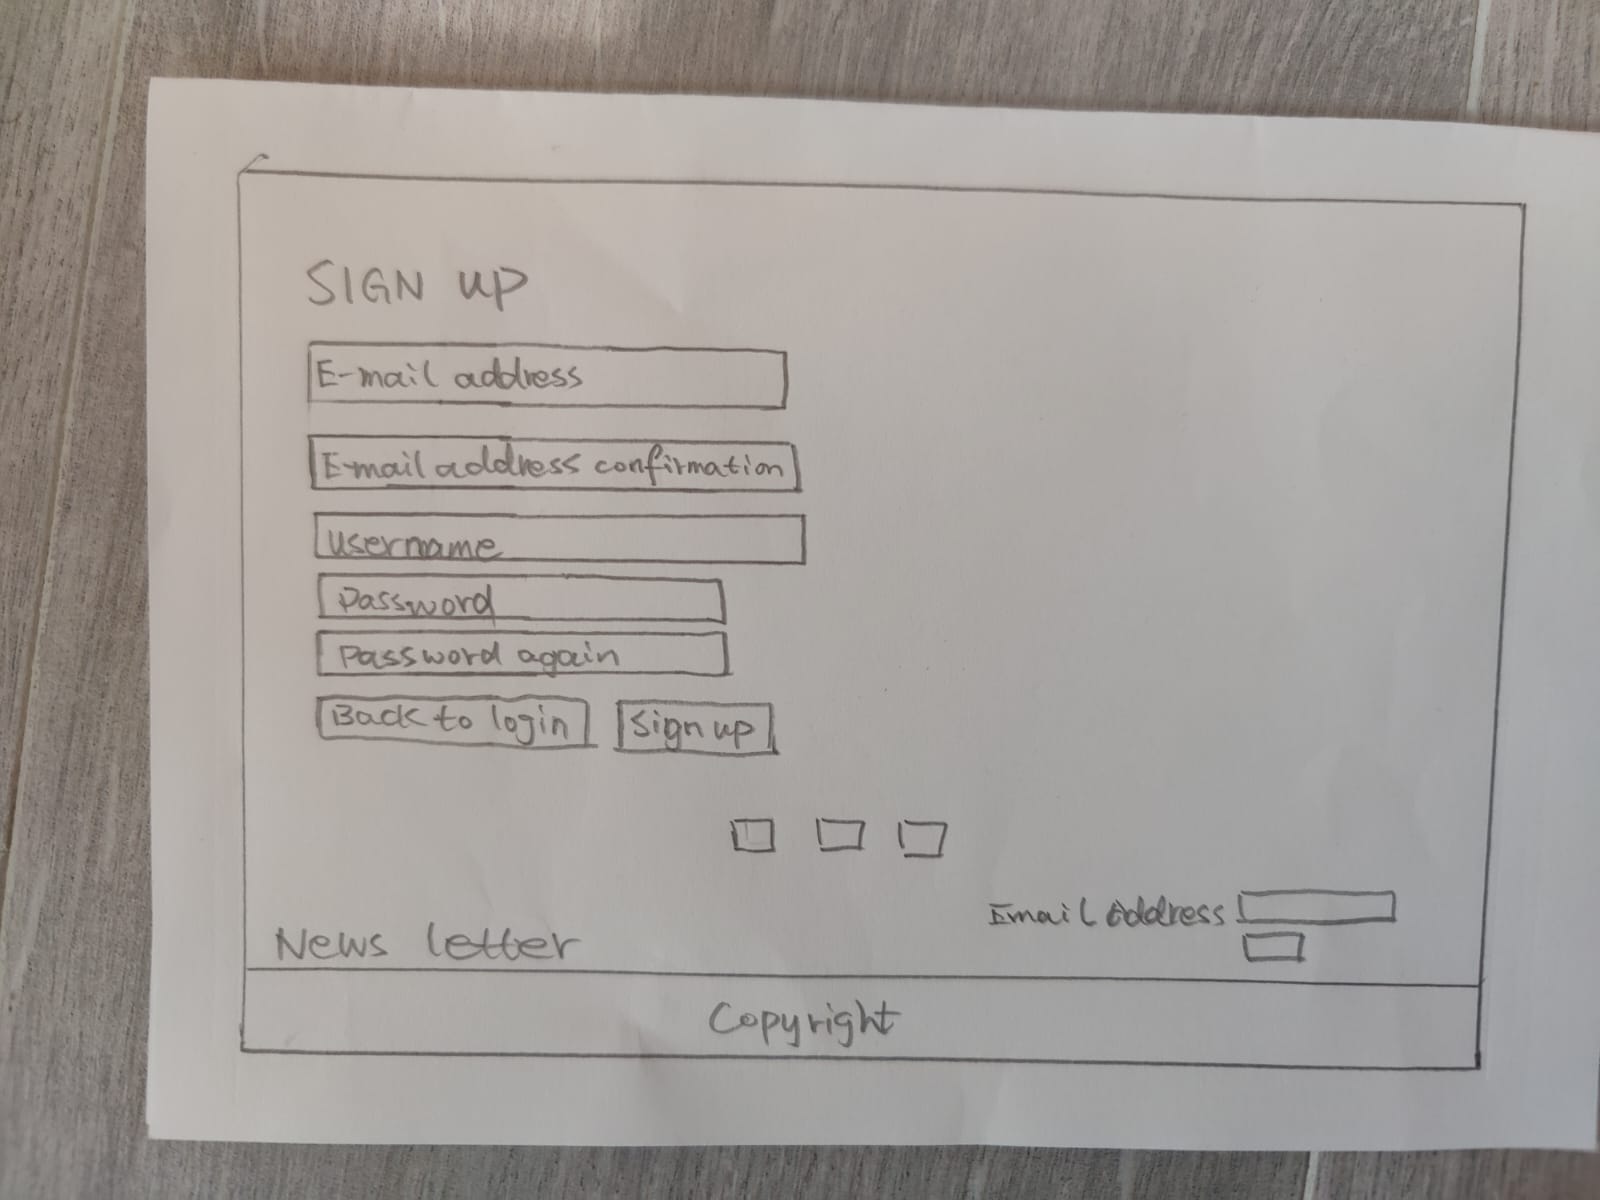 SIGN UP
E-mail address
E-mail address confirmation
username
Password
Password again
Back to login Sign up
Email Address
News letter
Copyright